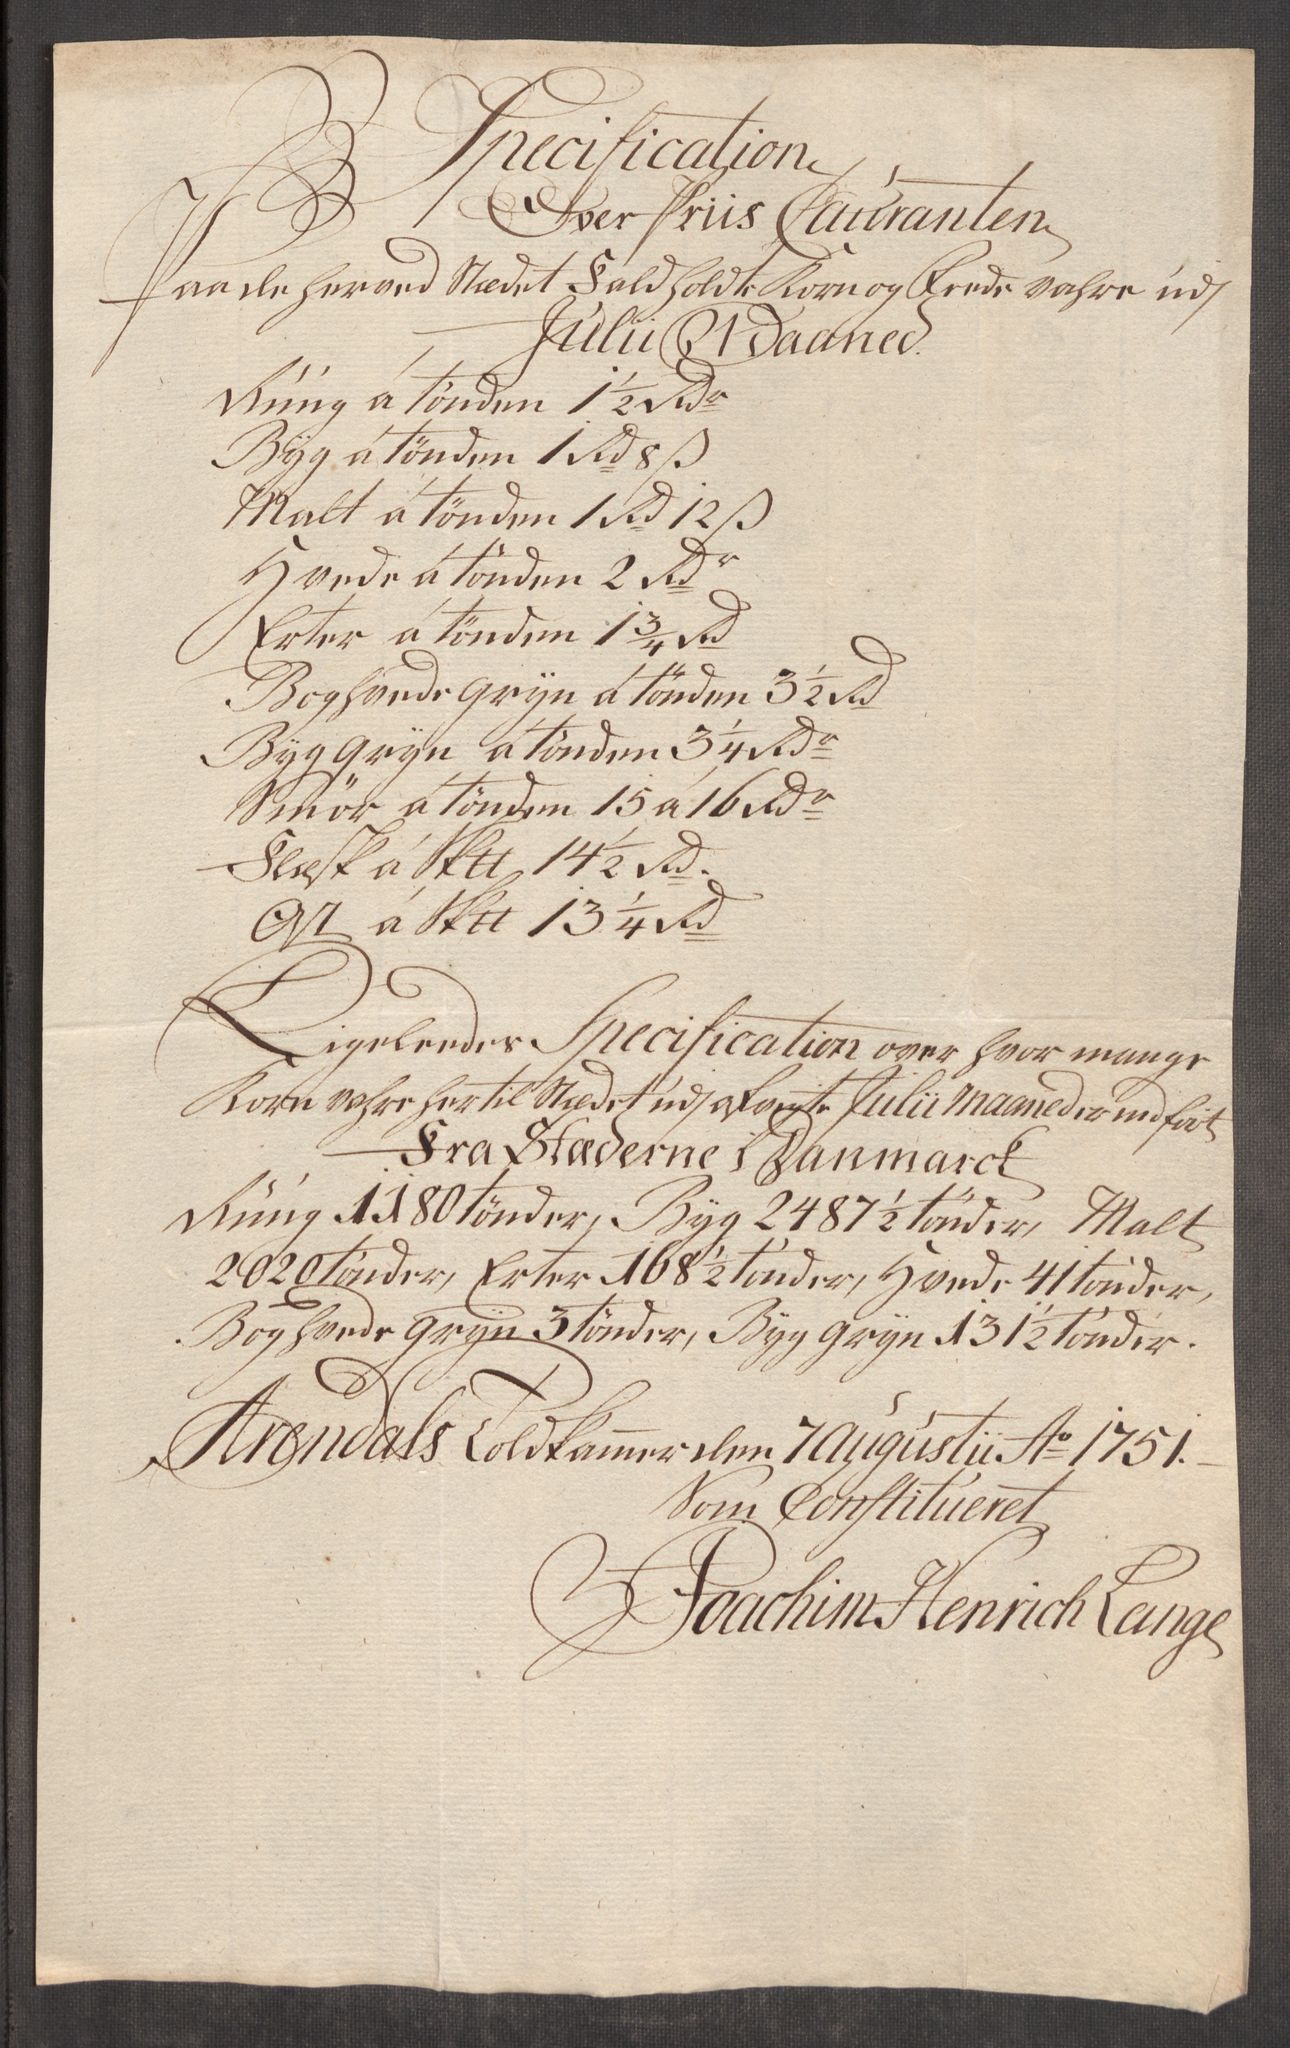 Specification
Over Priis Couranten
Paa de her ved Stædet Fald holdte Korn og Fede vahre udj
Julii Maaned.
Rúúg á tönden 1½ Rdr
Byg á tönden 1 Rd 8 ß
Malt á tönden 1 Rd 12 ß
Hvede á tönden 2 Rdr
Erter á tönden 1¾ Rd
Boghvede gryn á tönden 3½ Rd
Byg gryn á tönden 3¼ Rdr
Smör á tönden 15 á 16 Rdr
Flesk á Sktt 14½ Rd.
Ost á Sktt 13¼ Rd
Ligeleedes Specification over hvor mange
Korn vahre her til Stædet udj Julii Maaned er indfört
Fra Stæderne i Danmarck
Rúúg 1180 tönder, Byg 2487½ tönder, Malt
2020 tönder, Erter 168½ tönder, Hvede 41 tönder,
Boghvede gryn 3 tönder, Byg gryn 131½ tönder.
Arendals Toldkammer den 7 Augústii Ao 1751.
Som Constitueret
Joachim Henrich Lange